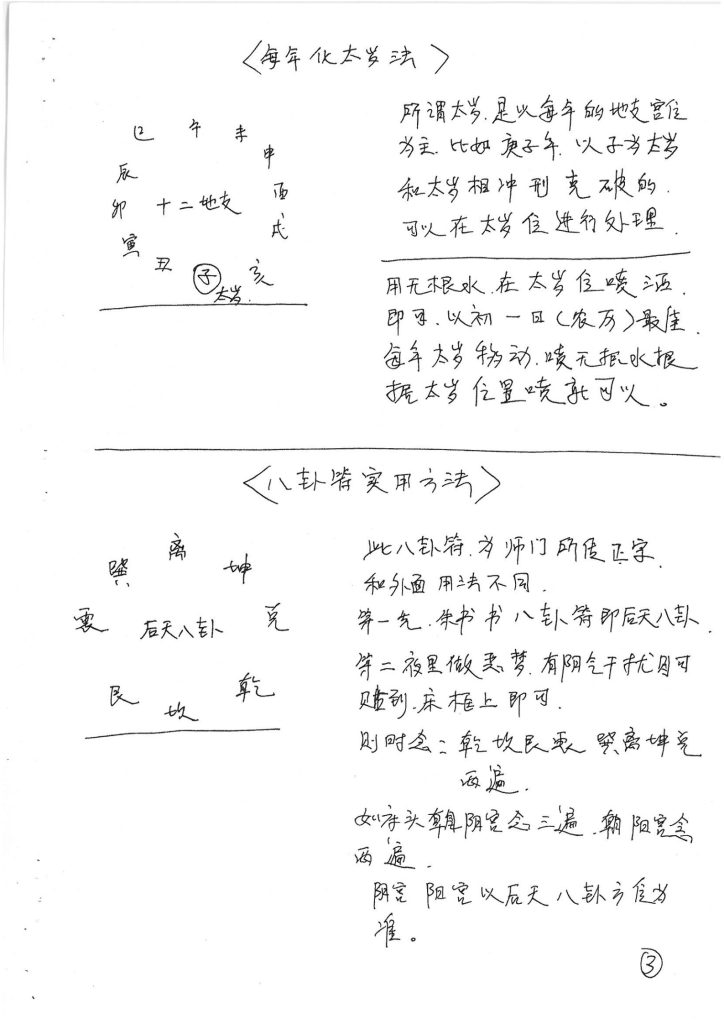 〈每年化太岁法〉
巳 午 未
申
辰
酉
卯 十二地支
戌
寅
丑 子 亥
太岁
所谓太岁.是以每年的地支宫位
为主.比如庚子年.以子为太岁
和太岁相冲刑克破的.
可以在太岁位进行处理.
用无根水.在太岁位喷洒.
即可.以初一日(农历)最佳.
每年太岁移动.喷无根水根
据太岁位置喷就可以。
〈八卦符实用方法〉
巽 离 坤
震 后天八卦 兑
艮 坎 乾
此八卦符.为师门所传正宗.
和外面用法不同.
第一先.朱书书八卦符即后天八卦.
第二夜里做恶梦.有阴气干扰则可
贴到.床框上即可.
则时念:乾坎艮震 巽离坤兑
两遍.
如床头朝阴宫念三遍.朝阳宫念
两遍.
阴宫 阳宫以后天八卦方位为
准。
③